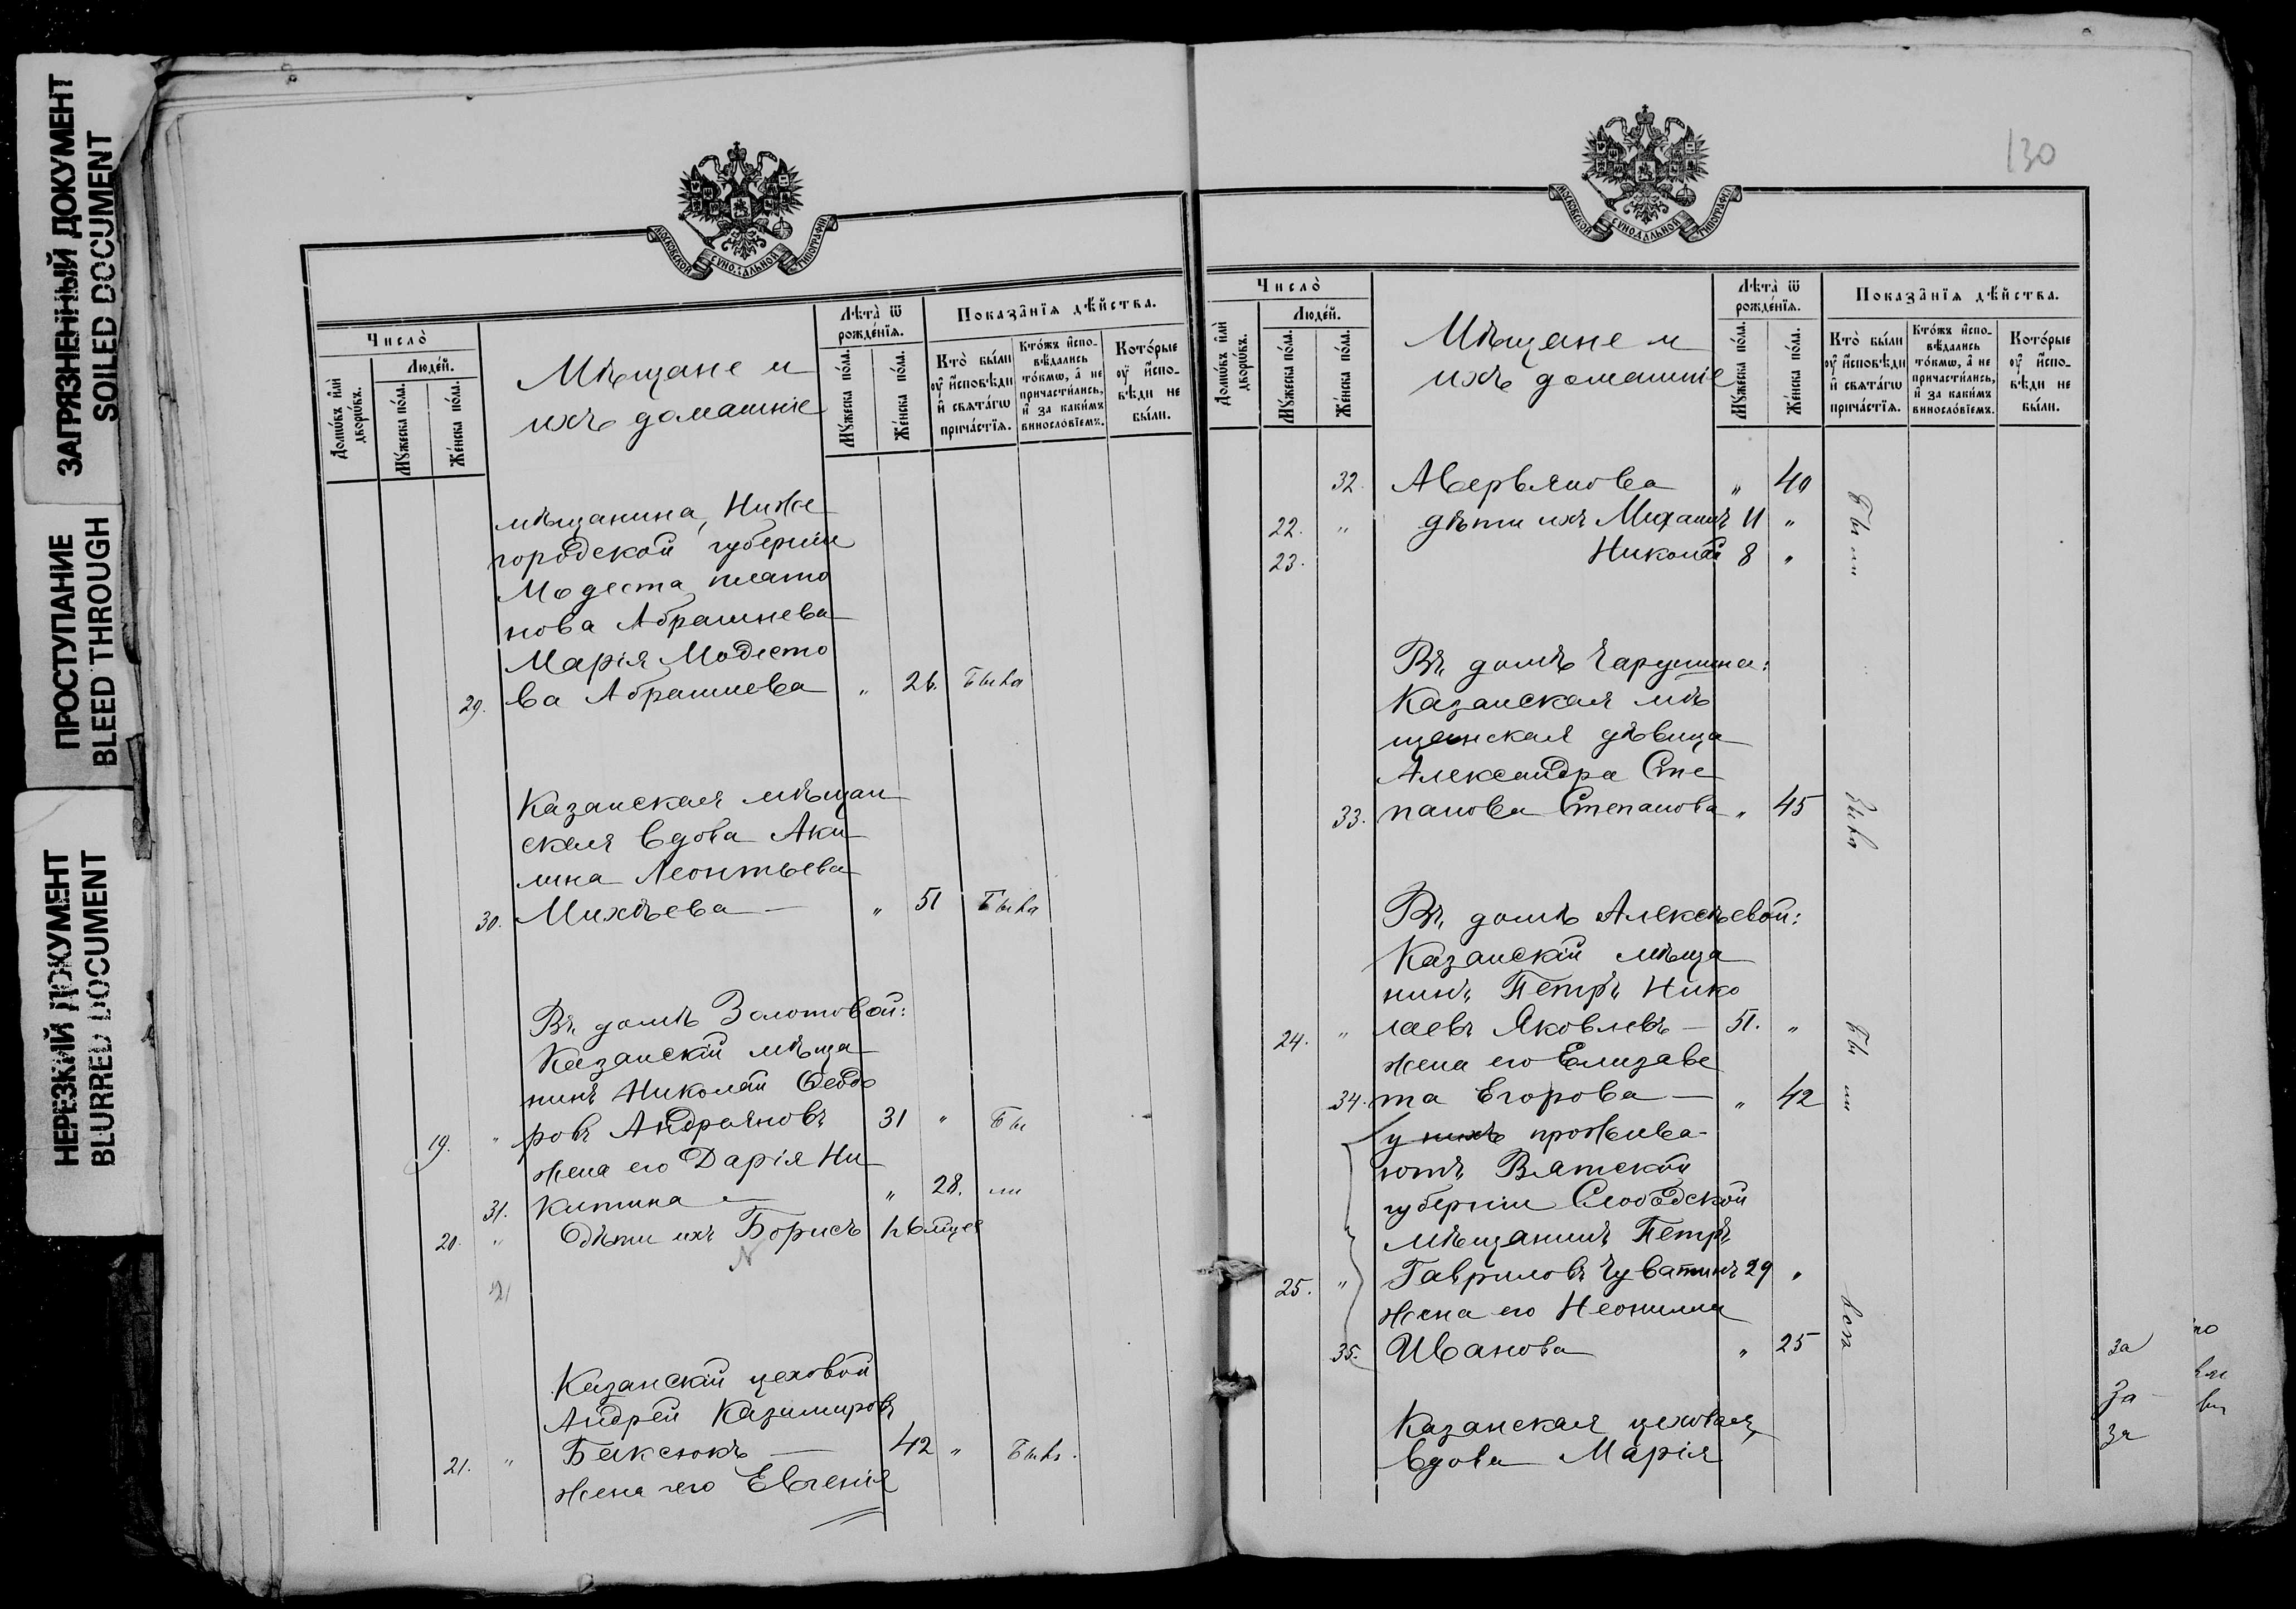 ЗАГРЯЗНЕННЫЙ ДОКУМЕНТ
SOILED DOCUMENT
ПРОСТУПАНИЕ
BLEED THROUGH
НЕРЕЗКИЙ ДОКУМЕНТ
BLURRED DOCUMENT
МОСКОВСКОЙ СУНОДАЛЬНОЙ ТИПОГРАФІИ
Число̀
Домѡ́въ и҆лѝ дворѡ́въ.
Люде́й.
Мꙋ́жеска по́ла.
Же́нска по́ла.
Мѣщане и
ихъ домашніе
Лѣ́та ѿ рожде́нїя.
Мꙋ́жеска по́ла.
Же́нска по́ла.
Показа̂нїя дѣ́йства.
Кто̀ бы́ли оу҆ и҆сповѣди и҆ свѧта́гѡ прича́стїѧ.
Кто́жъ и҆сповѣ́дались то́кмѡ, а҆ не причасти́лись, и҆ за каки́мъ винословїемъ.
Кото́рые оу҆ и҆сповѣди не бы́ли.
мѣщанина, Ниже
городской губерніи
Модеста Плато
нова Абрамнева
Марія Модесто
29. ва Абрамнева " 26. Была
Казанская мѣщан
ская вдова Аки
лина Леонтьева
30. Михѣева — " 51 Была
Въ домѣ Золотовой:
Казанскій мѣща
нинъ Николай Ѳеодо
19. " ровъ Андреяновъ 31 " Бы
жена его Дарія Ни
31. китина — " 28. ли
20. " Дѣти ихъ Борисъ
21
Казанскій цеховой
Андрей Казимировъ
21. " Баксюкъ — 42 " Былъ.
жена его Евгенія
130
МОСКОВСКОЙ СУНОДАЛЬНОЙ ТИПОГРАФІИ
Число̀
Домѡ́въ и҆лѝ дворѡ́въ.
Люде́й.
Мꙋ́жеска по́ла.
Же́нска по́ла.
Мѣщане и
ихъ домашніе
Лѣ́та ѿ рожде́нїя.
Мꙋ́жеска по́ла.
Же́нска по́ла.
Показа̂нїя дѣ́йства.
Кто̀ бы́ли оу҆ и҆сповѣди и҆ свѧта́гѡ прича́стїѧ.
Кто́жъ и҆сповѣ́дались то́кмѡ, а҆ не причасти́лись, и҆ за каки́мъ винословїемъ.
Кото́рые оу҆ и҆сповѣди не бы́ли.
32. Аверьянова " 40
22. " дѣти ихъ Михаилъ 11 "
23. Николай 8 "
Были
Въ домѣ Чарушина:
Казанская мѣ
щанская дѣвица
Александра Сте
33. панова Степанова " 45 Была
Въ домѣ Алексѣевой:
Казанскій мѣща
нинъ Петръ Нико
24. " лаевъ Яковлевъ — 51. "
жена его Елизаве
34. та Егорова — " 42
Были
у нихъ прожива
ютъ Вятской
губерніи Слободской
мѣщанинъ Петръ
25. " Гавриловъ Чуватинъ 29 "
жена его Неонилла
35. Иванова " 25
Казанская цеховая
вдова Марія
за
за
за